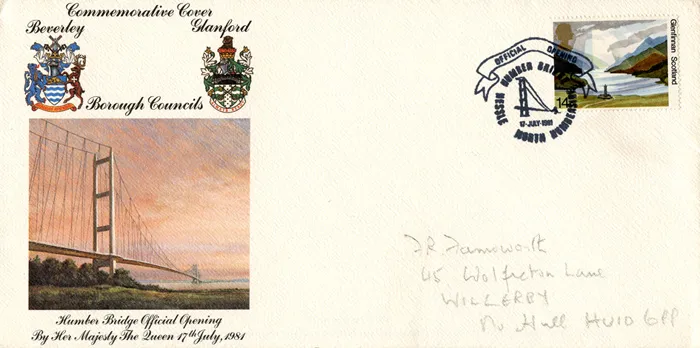 Commemorative Cover
Beverley Glanford
Borough Councils
Humber Bridge Official Opening
By Her Majesty The Queen 17th July, 1981
OFFICIAL OPENING
HUMBER BRIDGE
HESSLE
NORTH HUMBERSIDE
17-JULY-1981
14
Glenfinnan Scotland
J.R. Farnsworth
45 Wolfreton Lane
WILLERBY
Nr Hull HU10 6PP